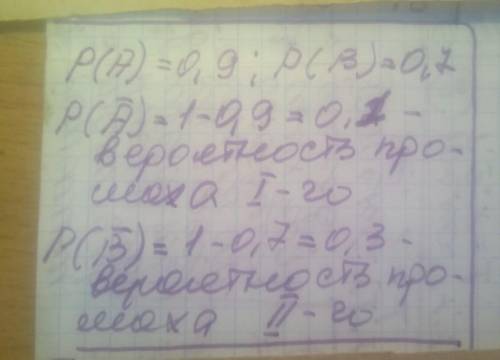 P(A) = 0,9 ; P(B) = 0,7
P(Ā) = 1 - 0,9 = 0,1 -
вероятность про-
маха I-го
P(B̄) = 1 - 0,7 = 0,3 -
вероятность про-
маха II-го